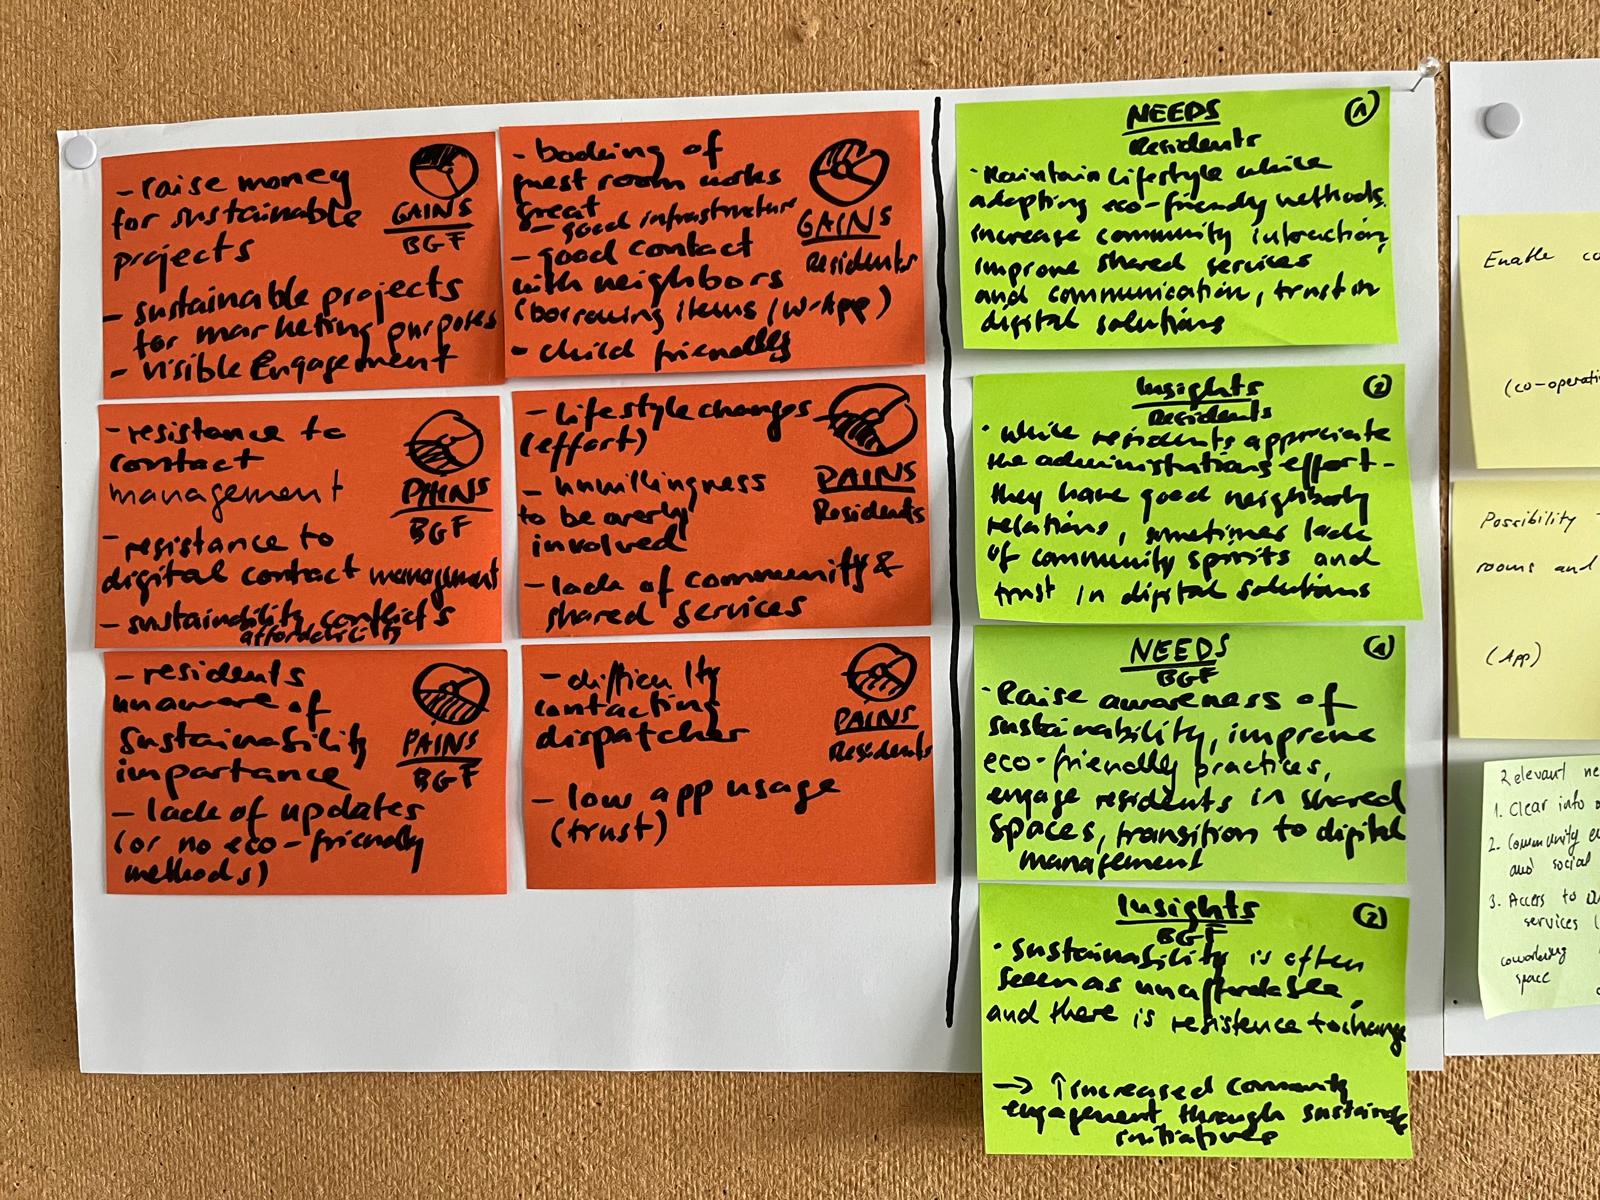 - raise money
for sustainable
projects
- sustainable projects
for marketing purposes
- visible Engagement
GAINS
BGF
- booking of
guest room works
great
- good infrastructure
- good contact
with neighbors
(borrowing items / W-App)
- child friendly
GAINS
Residents
- resistance to
contact
management
- resistance to
digital contact management
- sustainability conflicts
affordability
PAINS
BGF
- Lifestyle changes
(effort)
- unwillingness
to be overly
involved
- lack of community &
shared services
PAINS
Residents
- residents
unaware of
sustainability
importance
- lack of updates
(or no eco-friendly
methods)
PAINS
BGF
- difficulty
contacting
dispatcher
- low app usage
(trust)
PAINS
Residents
NEEDS
1
Residents
· Maintain lifestyle while
adapting eco-friendly methods,
increase community interaction,
improve shared services
and communication, trust in
digital solutions
Insights
2
Residents
· While residents appreciate
the administrations effort -
they have good neighborly
relations, sometimes lack
of community spirits and
trust in digital solutions
NEEDS
1
BGF
· Raise awareness of
sustainability, improve
eco-friendly practices,
engage residents in shared
spaces, transition to digital
management
Insights
2
BGF
· Sustainability is often
seen as unaffordable,
and there is resistence to change
→ ↑ increased community
engagement through sustainable
initiatives
Enable co
(co-operati
Possibility
rooms and
(App)
Relevant ne
1. Clear info
2. Community
and social
3. Access to
services (
coworking
space